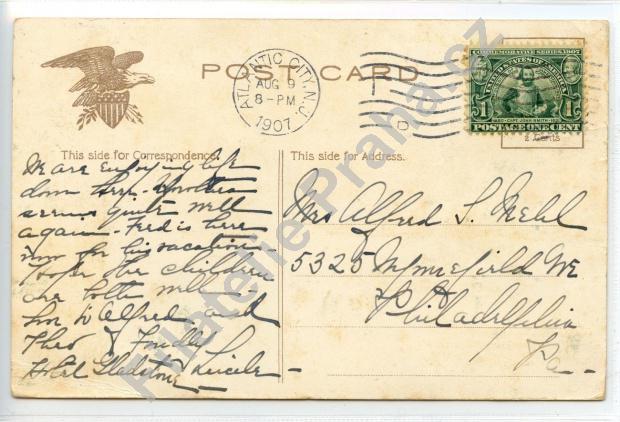 POST CARD
ATLANTIC CITY, N.J.
AUG 9
8-PM
1907
COMMEMORATIVE SERIES 1907
UNITED STATES OF AMERICA
1580 CAPT. JOHN SMITH 1631
1 1
POSTAGE ONE CENT
2 Cents
This side for Correspondence.
We are enjoying life
down here.
seems quite well
again. Fred is here
now for his vacation
the children
are both well
Alfred and
Theo
Hotel Gladstone
This side for Address.
Mrs Alfred S.
5325 Ave
Philadelphia
Pa
Filatelie-Praha.cz